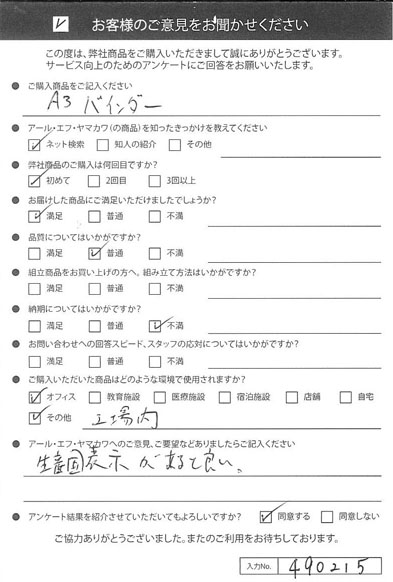 お客様のご意見をお聞かせください
この度は、弊社商品をご購入いただきまして誠にありがとうございます。
サービス向上のためのアンケートにご回答をお願いいたします。
● ご購入商品をご記入ください
A3 バインダー
● アール・エフ・ヤマカワ(の商品)を知ったきっかけを教えてください
☑ ネット検索 □ 知人の紹介 □ その他
● 弊社商品のご購入は何回目ですか?
☑ 初めて □ 2回目 □ 3回以上
● お届けした商品にご満足いただけましたでしょうか?
☑ 満足 □ 普通 □ 不満
● 品質についてはいかがですか?
□ 満足 ☑ 普通 □ 不満
● 組立商品をお買い上げの方へ。組み立て方法はいかがですか?
□ 満足 □ 普通 □ 不満
● 納期についてはいかがですか?
□ 満足 □ 普通 ☑ 不満
● お問い合わせへの回答スピード、スタッフの応対についてはいかがですか?
□ 満足 □ 普通 □ 不満
● ご購入いただいた商品はどのような環境で使用されますか?
☑ オフィス □ 教育施設 □ 医療施設 □ 宿泊施設 □ 店舗 □ 自宅
☑ その他 工場内
● アール・エフ・ヤマカワへのご意見、ご要望などありましたらご記入ください
生産国表示があると良い。
● アンケート結果を紹介させていただいてもよろしいですか? ☑ 同意する □ 同意しない
ご協力ありがとうございました。またのご利用をお待ちしております。
入力No. 490215